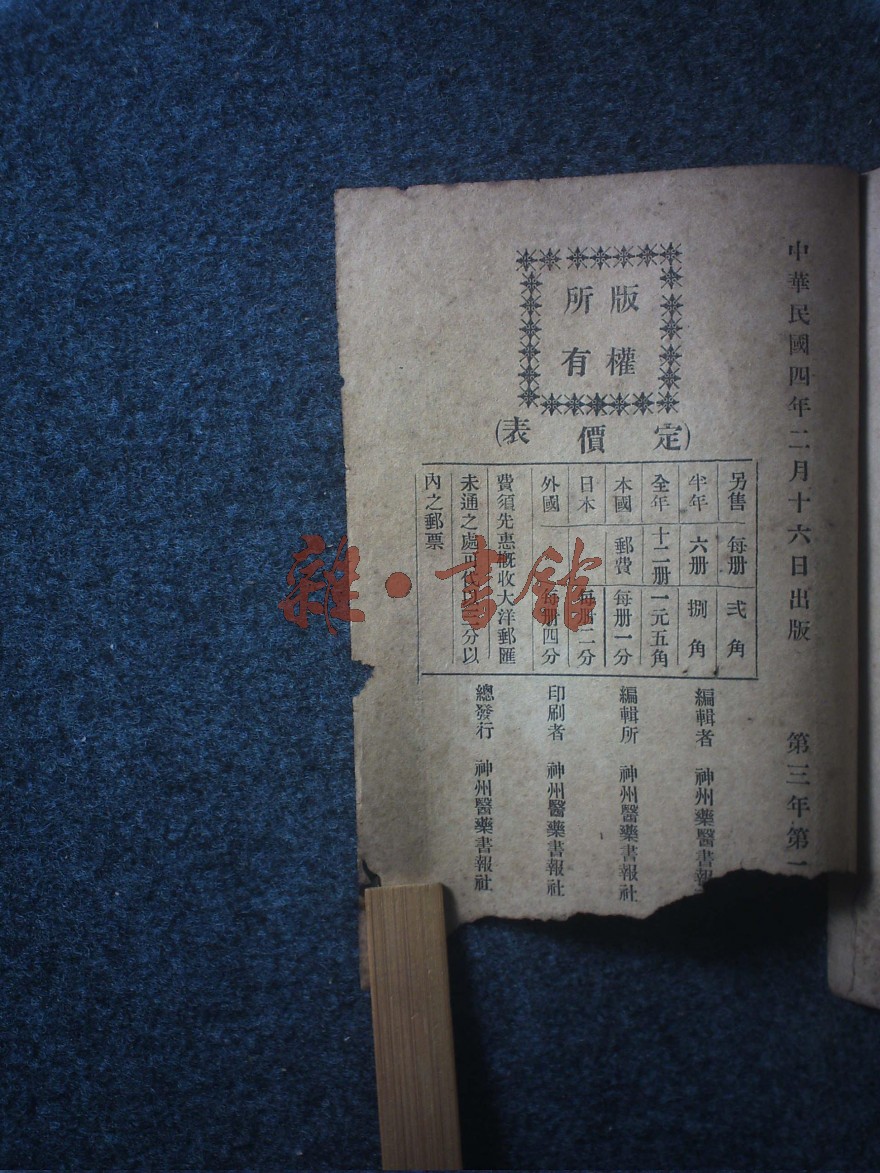 中華民國四年二月十六日出版 第三年第一
版權
所有
(定價表)
另售 每册 弍角
半年 六册 捌角
全年 十二册 一元五角
本國 郵費 每册一分
日本 每册二分
外國 每册四分
費須先惠概收大洋郵匯
未通之處可代以三分以
內之郵票
編輯者 神州藥醫書報
編輯所 神州醫藥書報社
印刷者 神州醫藥書報社
總發行 神州醫藥書報社
雜·書館